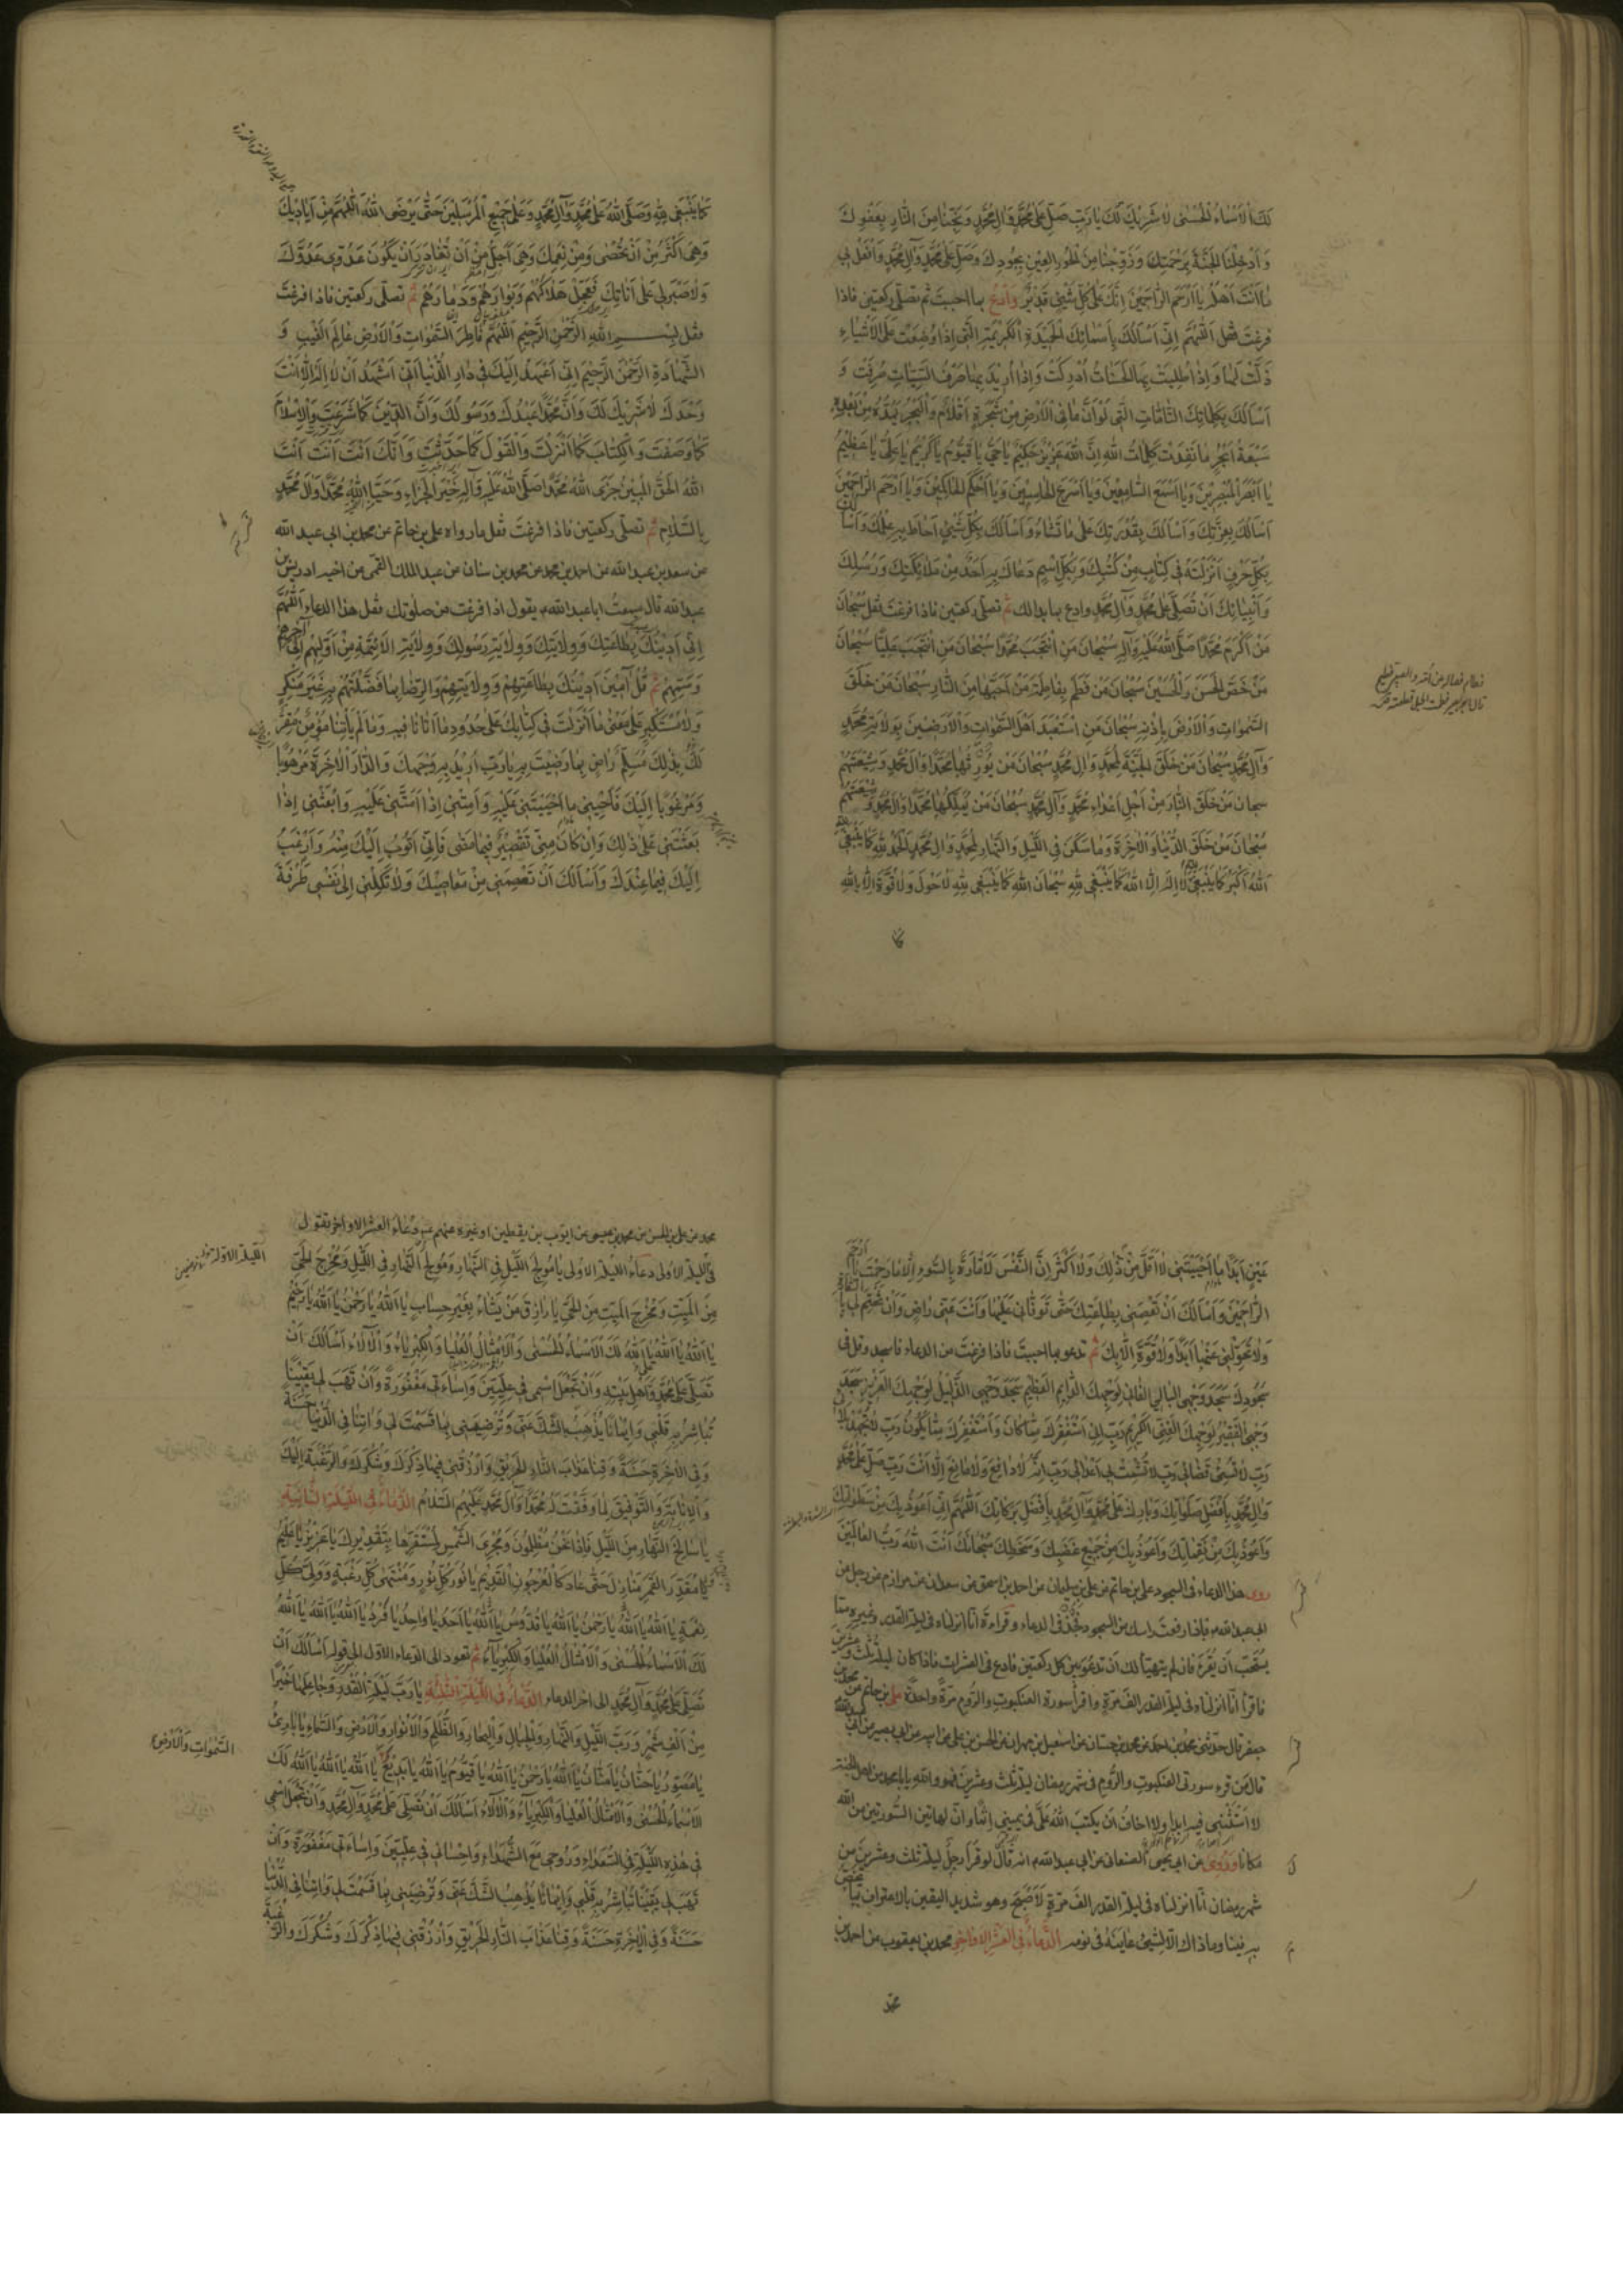 لَكَ الْاَسْمَاءُ الْحُسْنٰى لَا شَرِيْكَ لَكَ يَا رَبِّ صَلِّ عَلٰى مُحَمَّدٍ وَاٰلِ مُحَمَّدٍ وَنَجِّنَا مِنَ النَّارِ بِعَفْوِكَ
وَاَدْخِلْنَا الْجَنَّةَ بِرَحْمَتِكَ وَزَوِّجْنَا مِنَ الْحُوْرِ الْعِيْنِ بِجُوْدِكَ وَصَلِّ عَلٰى مُحَمَّدٍ وَاٰلِ مُحَمَّدٍ وَافْعَلْ بِي
مَا اَنْتَ اَهْلُهُ يَا اَرْحَمَ الرَّاحِمِيْنَ اِنَّكَ عَلٰى كُلِّ شَيْئٍ قَدِيْرٌ وَادْعُ بما احببتَ ثم تصلّى ركعتين فاذا
فرغتَ فقل اَللّٰهُمَّ اِنِّي اَسْاَلُكَ بِاَسْمَائِكَ الْحَمِيْدَةِ الْكَرِيْمَةِ الَّتِي اِذَا وُضِعَتْ عَلَى الْاَشْيَاءِ
ذَلَّتْ لَهَا وَاِذَا طُلِبَتْ بِهَا الْحَسَنَاتُ اُدْرِكَتْ وَاِذَا اُرِيْدَ بِهَا صَرْفُ السَّيِّئَاتِ صُرِفَتْ وَ
اَسْاَلُكَ بِكَلِمَاتِكَ التَّامَّاتِ الَّتِي لَوْ اَنَّ مَا فِي الْاَرْضِ مِنْ شَجَرَةٍ اَقْلَامٌ وَالْبَحْرُ يَمُدُّهُ مِنْ بَعْدِهِ
سَبْعَةُ اَبْحُرٍ مَا نَفِدَتْ كَلِمَاتُ اللهِ اِنَّ اللهَ عَزِيْزٌ حَكِيْمٌ يَا حَيُّ يَا قَيُّوْمُ يَا كَرِيْمُ يَا عَلِيُّ يَا عَظِيْمُ
يَا اَبْصَرَ الْمُبْصِرِيْنَ وَيَا اَسْمَعَ السَّامِعِيْنَ وَيَا اَسْرَعَ الْحَاسِبِيْنَ وَيَا اَحْكَمَ الْحَاكِمِيْنَ وَيَا اَرْحَمَ الرَّاحِمِيْنَ
اَسْاَلُكَ بِعِزَّتِكَ وَاَسْاَلُكَ بِقُدْرَتِكَ عَلٰى مَا تَشَاءُ وَاَسْاَلُكَ بِكُلِّ شَيْئٍ اَحَاطَ بِهِ عِلْمُكَ وَاَسْاَلُكَ
بِكُلِّ حَرْفٍ اَنْزَلْتَهُ فِي كِتَابٍ مِنْ كُتُبِكَ وَبِكُلِّ اسْمٍ دَعَاكَ بِهِ اَحَدٌ مِنْ مَلَائِكَتِكَ وَرُسُلِكَ
وَاَنْبِيَائِكَ اَنْ تُصَلِّيَ عَلٰى مُحَمَّدٍ وَاٰلِ مُحَمَّدٍ وادع بما بدا لك ثم تصلّى ركعتين فاذا فرغتَ فقل سُبْحَانَ
مَنْ اَكْرَمَ مُحَمَّدًا صَلَّى اللهُ عَلَيْهِ وَاٰلِهِ سُبْحَانَ مَنِ انْتَجَبَ مُحَمَّدًا سُبْحَانَ مَنِ انْتَجَبَ عَلِيًّا سُبْحَانَ
مَنْ خَصَّ الْحَسَنَ وَالْحُسَيْنَ سُبْحَانَ مَنْ فَطَمَ بِفَاطِمَةَ مَنْ اَحَبَّهَا مِنَ النَّارِ سُبْحَانَ مَنْ خَلَقَ
السَّمٰوَاتِ وَالْاَرْضَ بِاِذْنِهِ سُبْحَانَ مَنِ اسْتَعْبَدَ اَهْلَ السَّمٰوَاتِ وَالْاَرَضِيْنَ بِوِلَايَةِ مُحَمَّدٍ
وَاٰلِ مُحَمَّدٍ سُبْحَانَ مَنْ خَلَقَ الْجَنَّةَ لِمُحَمَّدٍ وَاٰلِ مُحَمَّدٍ سُبْحَانَ مَنْ يُوْرِثُهَا مُحَمَّدًا وَاٰلَ مُحَمَّدٍ وَشِيْعَتَهُمْ
سبحان مَنْ خَلَقَ النَّارَ مِنْ اَجْلِ اَعْدَاءِ مُحَمَّدٍ وَاٰلِ مُحَمَّدٍ سُبْحَانَ مَنْ يُمَلِّكُهَا مُحَمَّدًا وَاٰلَ مُحَمَّدٍ وَشِيْعَتَهُمْ
سُبْحَانَ مَنْ خَلَقَ الدُّنْيَا وَالْاٰخِرَةَ وَمَا سَكَنَ فِي اللَّيْلِ وَالنَّهَارِ لِمُحَمَّدٍ وَاٰلِ مُحَمَّدٍ اَلْحَمْدُ لِلّٰهِ كَمَا يَنْبَغِي لِلّٰهِ
اَللهُ اَكْبَرُ كَمَا يَنْبَغِي لِلّٰهِ لَا اِلٰهَ اِلَّا اللهُ كَمَا يَنْبَغِي لِلّٰهِ سُبْحَانَ اللهِ كَمَا يَنْبَغِي لِلّٰهِ لَا حَوْلَ وَلَا قُوَّةَ اِلَّا بِاللهِ
كما
كَمَا يَنْبَغِي لِلّٰهِ وَصَلَّى اللهُ عَلٰى مُحَمَّدٍ وَاٰلِ مُحَمَّدٍ وَعَلٰى جَمِيْعِ الْمُرْسَلِيْنَ حَتّٰى يَرْضَى اللهُ اَللّٰهُمَّ مِنْ اَيَادِيْكَ
وَهِيَ اَكْثَرُ مِنْ اَنْ تُحْصٰى وَمِنْ نِعَمِكَ وَهِيَ اَجَلُّ مِنْ اَنْ تُغَادَرَ اَنْ يَكُوْنَ عَدُوِّي عَدُوَّكَ
وَلَا صَبْرَ لِي عَلٰى اَنَاتِكَ فَعَجِّلْ هَلَاكَهُمْ وَبَوَارَهُمْ وَدَمَارَهُمْ ثم تصلّى ركعتين فاذا فرغتَ
فقل بِسْمِ اللهِ الرَّحْمٰنِ الرَّحِيْمِ اَللّٰهُمَّ فَاطِرَ السَّمٰوَاتِ وَالْاَرْضِ عَالِمَ الْغَيْبِ وَ
الشَّهَادَةِ الرَّحْمٰنَ الرَّحِيْمَ اِنِّي اَعْهَدُ اِلَيْكَ فِي دَارِ الدُّنْيَا اَنِّي اَشْهَدُ اَنْ لَا اِلٰهَ اِلَّا اَنْتَ
وَحْدَكَ لَا شَرِيْكَ لَكَ وَاَنَّ مُحَمَّدًا عَبْدُكَ وَرَسُوْلُكَ وَاَنَّ الدِّيْنَ كَمَا شَرَعْتَ وَالْاِسْلَامَ
كَمَا وَصَفْتَ وَالْكِتَابَ كَمَا اَنْزَلْتَ وَالْقَوْلَ كَمَا حَدَّثْتَ وَاَنَّكَ اَنْتَ اَنْتَ اَنْتَ
اللهُ الْحَقُّ الْمُبِيْنُ جَزَى اللهُ مُحَمَّدًا صَلَّى اللهُ عَلَيْهِ وَاٰلِهِ خَيْرَ الْجَزَاءِ وَحَيَّا اللهُ مُحَمَّدًا وَاٰلَ مُحَمَّدٍ
بِالسَّلَامِ ثم تصلّى ركعتين فاذا فرغتَ فقل مارواه على بن حاتم عن محمد بن ابى عبد الله
عن سعد بن عبد الله عن احمد بن محمد عن محمد بن سنان عن عبد الملك القمى عن اخيه ادريس بن
عبد الله قال سمعتُ ابا عبد الله يقول اذا فرغت من صلوتك فقل هذا الدعاء اَللّٰهُمَّ
اِنِّي اَدِيْنُكَ بِطَاعَتِكَ وَوِلَايَتِكَ وَوِلَايَةِ رَسُوْلِكَ وَوِلَايَةِ الْاَئِمَّةِ مِنْ اَوَّلِهِمْ اِلٰى اٰخِرِهِمْ
وَسَمِّهِمْ ثم قُلْ اٰمِيْنَ اَدِيْنُكَ بِطَاعَتِهِمْ وَوِلَايَتِهِمْ وَالرِّضَا بِمَا فَضَّلْتَهُمْ بِهِ غَيْرَ مُنْكِرٍ
وَلَا مُسْتَكْبِرٍ عَلٰى مَعْنٰى مَا اَنْزَلْتَ فِي كِتَابِكَ عَلٰى حُدُوْدِ مَا اَتَانَا فِيْهِ وَمَا لَمْ يَاْتِنَا مُؤْمِنٌ مُقِرٌّ
لَكَ بِذٰلِكَ مُسَلِّمٌ رَاضٍ بِمَا رَضِيْتَ بِهِ يَا رَبِّ اُرِيْدُ بِهِ وَجْهَكَ وَالدَّارَ الْاٰخِرَةَ مَرْهُوْبًا
وَمَرْغُوْبًا اِلَيْكَ فَاَحْيِنِي مَا اَحْيَيْتَنِي عَلَيْهِ وَاَمِتْنِي اِذَا اَمَتَّنِي عَلَيْهِ وَابْعَثْنِي اِذَا
بَعَثْتَنِي عَلٰى ذٰلِكَ وَاِنْ كَانَ مِنِّي تَقْصِيْرٌ فِيْمَا مَضٰى فَاِنِّي اَتُوْبُ اِلَيْكَ مِنْهُ وَاَرْغَبُ
اِلَيْكَ فِيْمَا عِنْدَكَ وَاَسْاَلُكَ اَنْ تَعْصِمَنِي مِنْ مَعَاصِيْكَ وَلَا تَكِلَنِي اِلٰى نَفْسِي طَرْفَةَ
عَيْنٍ اَبَدًا مَا اَحْيَيْتَنِي لَا اَقَلَّ مِنْ ذٰلِكَ وَلَا اَكْثَرَ اِنَّ النَّفْسَ لَاَمَّارَةٌ بِالسُّوْءِ اِلَّا مَا رَحِمْتَ يَا اَرْحَمَ
الرَّاحِمِيْنَ وَاَسْاَلُكَ اَنْ تَعْصِمَنِي بِطَاعَتِكَ حَتّٰى تَوَفَّانِي عَلَيْهَا وَاَنْتَ عَنِّي رَاضٍ وَاَنْ تَخْتِمَ لِي بِالسَّعَادَةِ
وَلَا تُحَوِّلَنِي عَنْهَا اَبَدًا وَلَا قُوَّةَ اِلَّا بِكَ ثم تدعو بما احببتَ فاذا فرغتَ من الدعاء فاسجد وقل فى
سُجُوْدِكَ سَجَدَ وَجْهِيَ الْبَالِي الْفَانِي لِوَجْهِكَ الدَّائِمِ الْعَظِيْمِ سَجَدَ وَجْهِيَ الذَّلِيْلُ لِوَجْهِكَ الْعَزِيْزِ سَجَدَ
وَجْهِيَ الْفَقِيْرُ لِوَجْهِكَ الْغَنِيِّ الْكَرِيْمِ رَبِّ اِنِّي اَسْتَغْفِرُكَ مِمَّا كَانَ وَاَسْتَغْفِرُكَ مِمَّا يَكُوْنُ رَبِّ لَا تُجْهِدْ بَلَائِي
رَبِّ لَا تُسِئْ قَضَائِي رَبِّ لَا تُشْمِتْ بِي اَعْدَائِي رَبِّ اِنَّهُ لَا دَافِعَ وَلَا مَانِعَ اِلَّا اَنْتَ رَبِّ صَلِّ عَلٰى مُحَمَّدٍ
وَاٰلِ مُحَمَّدٍ بِاَفْضَلِ صَلَوَاتِكَ وَبَارِكْ عَلٰى مُحَمَّدٍ وَاٰلِ مُحَمَّدٍ بِاَفْضَلِ بَرَكَاتِكَ اَللّٰهُمَّ اِنِّي اَعُوْذُ بِكَ مِنْ سَطَوَاتِكَ
وَاَعُوْذُ بِكَ مِنْ نَقِمَاتِكَ وَاَعُوْذُ بِكَ مِنْ جَمِيْعِ غَضَبِكَ وَسَخَطِكَ سُبْحَانَكَ اَنْتَ اللهُ رَبُّ الْعَالَمِيْنَ
روى هذا الدعاء فى السجود على بن حاتم عن على بن سليمان عن احمد بن اسحق عن سعدان عن مرازم عن رجل عن
ابى عبد الله فاذا رفعتَ راسك من السجود فَخُذْ فى الدعاء وقراءة انّا انزلناه فى ليلة القدر وغيره ممّا
يستحبّ أن يُقرَء فان لم يتهيّأ لك ان تدعو بين كل ركعتين فادع فى العشرات فاذا كان ليلة ثلث وعشرين
فاقرأ انّا انزلناه فى ليلة القدر الفَ مرّةٍ واقرأ سورة العنكبوت والرُّوم مرّةً واحدةً على بن حاتم عن محمد بن
جعفر قال حدثنى محمد بن احمد عن محمد بن حسّان عن اسمعيل بن مهران عن الحسن بن على عن ابيه عن ابى بصير عن ابى عبد الله
قال مَن قرء سورتى العنكبوت والرُّوم فى شهر رمضان ليلة ثلث وعشرين فهو والله يا بامحمد من اهل الجنة
لا اَسْتَثْنِي فيه ابدًا ولا اخافُ ان يكتبَ اللهُ عَلَىَّ فى يمينى إثمًا وانّ لهاتين السُّورتين من الله
مكانا وَرُوِىَ عن ابى يحيى الصنعانى عن ابى عبد الله انه قال لو قرأ رجل ليلة ثلث وعشرين من
شهر رمضان انّا انزلناه فى ليلة القدر الفَ مرّةٍ لَأصْبَحَ وهو شديد اليقين بالاعتراف بما يختصّ
به فينا وماذاك الّا لشيئٍ عاينَه فى نومه الدُّعاءُ فى العشر الاواخر محمد بن يعقوب عن احمد بن
محمد
محمد عن على بن الحسن عن محمد بن عيسى عن ايّوب بن يقطين او غيره عنهم دُعاءَ العشر الاواخر تقول
فى الليلة الاولى دعاءُ الليلة الاولى يَا مُوْلِجَ اللَّيْلِ فِي النَّهَارِ وَمُوْلِجَ النَّهَارِ فِي اللَّيْلِ وَمُخْرِجَ الْحَيِّ
مِنَ الْمَيِّتِ وَمُخْرِجَ الْمَيِّتِ مِنَ الْحَيِّ يَا رَازِقَ مَنْ يَشَاءُ بِغَيْرِ حِسَابٍ يَا اَللهُ يَا رَحْمٰنُ يَا اَللهُ يَا رَحِيْمُ
يَا اَللهُ يَا اَللهُ يَا اَللهُ لَكَ الْاَسْمَاءُ الْحُسْنٰى وَالْاَمْثَالُ الْعُلْيَا وَالْكِبْرِيَاءُ وَالْاٰلَاءُ اَسْاَلُكَ اَنْ
تُصَلِّيَ عَلٰى مُحَمَّدٍ وَاَهْلِ بَيْتِهِ وَاَنْ تَجْعَلَ اسْمِي فِي عِلِّيِّيْنَ وَاِسَاءَتِي مَغْفُوْرَةً وَاَنْ تَهَبَ لِي يَقِيْنًا
تُبَاشِرُ بِهِ قَلْبِي وَاِيْمَانًا يُذْهِبُ الشَّكَّ عَنِّي وَتُرْضِيَنِي بِمَا قَسَمْتَ لِي وَاٰتِنَا فِي الدُّنْيَا حَسَنَةً
وَفِي الْاٰخِرَةِ حَسَنَةً وَقِنَا عَذَابَ النَّارِ الْحَرِيْقِ وَارْزُقْنِي فِيْهَا ذِكْرَكَ وَشُكْرَكَ وَالرَّغْبَةَ اِلَيْكَ
وَالْاِنَابَةَ وَالتَّوْفِيْقَ لِمَا وَفَّقْتَ لَهُ مُحَمَّدًا وَاٰلَ مُحَمَّدٍ عَلَيْهِمُ السَّلَامُ الدُّعَاءُ فى اللَّيْلَةِ الثَّانِيَةِ
يَا سَالِخَ النَّهَارِ مِنَ اللَّيْلِ فَاِذَا نَحْنُ مُظْلِمُوْنَ وَمُجْرِيَ الشَّمْسِ لِمُسْتَقَرِّهَا بِتَقْدِيْرِكَ يَا عَزِيْزُ يَا عَلِيْمُ
وَيَا مُقَدِّرَ الْقَمَرِ مَنَازِلَ حَتّٰى عَادَ كَالْعُرْجُوْنِ الْقَدِيْمِ يَا نُوْرَ كُلِّ نُوْرٍ وَمُنْتَهٰى كُلِّ رَغْبَةٍ وَوَلِيَّ كُلِّ
نِعْمَةٍ يَا اَللهُ يَا اَللهُ يَا رَحْمٰنُ يَا اَللهُ يَا قُدُّوْسُ يَا اَللهُ يَا اَحَدُ يَا وَاحِدُ يَا فَرْدُ يَا اَللهُ يَا اَللهُ يَا اَللهُ
لَكَ الْاَسْمَاءُ الْحُسْنٰى وَالْاَمْثَالُ الْعُلْيَا وَالْكِبْرِيَاءُ ثم تعود الى الدّعاء الاوّل الى قوله اَسْاَلُكَ اَنْ
تُصَلِّيَ عَلٰى مُحَمَّدٍ وَاٰلِ مُحَمَّدٍ الى اخر الدعاء الدُّعَاءُ فى اللَّيْلَةِ الثَّالِثَةِ يَا رَبَّ لَيْلَةِ الْقَدْرِ وَجَاعِلَهَا خَيْرًا
مِنْ اَلْفِ شَهْرٍ وَرَبَّ اللَّيْلِ وَالنَّهَارِ وَالْجِبَالِ وَالْبِحَارِ وَالظُّلَمِ وَالْاَنْوَارِ وَالْاَرْضِ وَالسَّمَاءِ يَا بَارِئُ
يَا مُصَوِّرُ يَا حَنَّانُ يَا مَنَّانُ يَا اَللهُ يَا رَحْمٰنُ يَا اَللهُ يَا قَيُّوْمُ يَا اَللهُ يَا بَدِيْعُ يَا اَللهُ يَا اَللهُ يَا اَللهُ لَكَ
الْاَسْمَاءُ الْحُسْنٰى وَالْاَمْثَالُ الْعُلْيَا وَالْكِبْرِيَاءُ وَالْاٰلَاءُ اَسْاَلُكَ اَنْ تُصَلِّيَ عَلٰى مُحَمَّدٍ وَاٰلِ مُحَمَّدٍ وَاَنْ تَجْعَلَ اسْمِي
فِي هٰذِهِ اللَّيْلَةِ فِي السُّعَدَاءِ وَرُوْحِي مَعَ الشُّهَدَاءِ وَاِحْسَانِي فِي عِلِّيِّيْنَ وَاِسَاءَتِي مَغْفُوْرَةً وَاَنْ
تَهَبَ لِي يَقِيْنًا تُبَاشِرُ بِهِ قَلْبِي وَاِيْمَانًا يُذْهِبُ الشَّكَّ عَنِّي وَتُرْضِيَنِي بِمَا قَسَمْتَ لِي وَاٰتِنَا فِي الدُّنْيَا
حَسَنَةً وَفِي الْاٰخِرَةِ حَسَنَةً وَقِنَا عَذَابَ النَّارِ الْحَرِيْقِ وَارْزُقْنِي فِيْهَا ذِكْرَكَ وَشُكْرَكَ وَالرَّغْبَةَ
الليلة الاولة
السَّمٰوَاتِ وَالْاَرْضِ